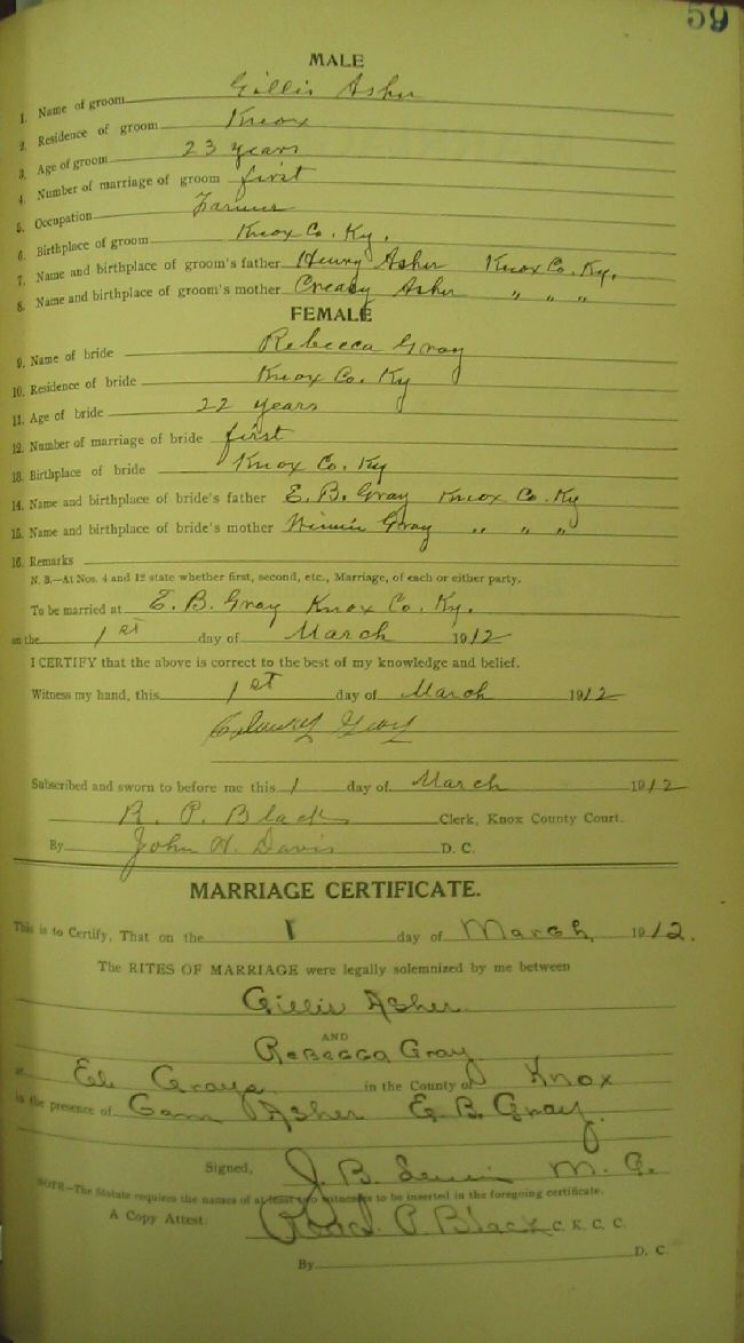 59
MALE
1. Name of groom Gillis Asher
2. Residence of groom Knox
3. Age of groom 23 years
4. Number of marriage of groom first
5. Occupation Farmer
6. Birthplace of groom Knox Co. Ky.
7. Name and birthplace of groom's father Henry Asher Knox Co. Ky.
8. Name and birthplace of groom's mother Creasy Asher " " "
FEMALE
9. Name of bride Rebecca Gray
10. Residence of bride Knox Co. Ky
11. Age of bride 22 years
12. Number of marriage of bride first
13. Birthplace of bride Knox Co. Ky
14. Name and birthplace of bride's father E. B. Gray Knox Co. Ky
15. Name and birthplace of bride's mother Winnie Gray " " "
16. Remarks
N. B.—At Nos. 4 and 12 state whether first, second, etc., Marriage, of each or either party.
To be married at E. B. Gray Knox Co. Ky.
on the 1st day of March 1912
I CERTIFY that the above is correct to the best of my knowledge and belief.
Witness my hand, this 1st day of March 1912
Gray
Subscribed and sworn to before me this 1 day of March 1912
R. P. Black Clerk, Knox County Court.
By John H. Davis D. C.
MARRIAGE CERTIFICATE.
This is to Certify, That on the 1 day of March, 1912.
The RITES OF MARRIAGE were legally solemnized by me between
Gillis Asher
AND
Rebecca Gray
at Eli Grays in the County of Knox
in the presence of Asher E. B. Gray.
Signed, J. B. M. G.
NOTE—The Statute requires the names of at least two witnesses to be inserted in the foregoing certificate.
A Copy Attest: P. Black C. K. C. C.
By D. C.